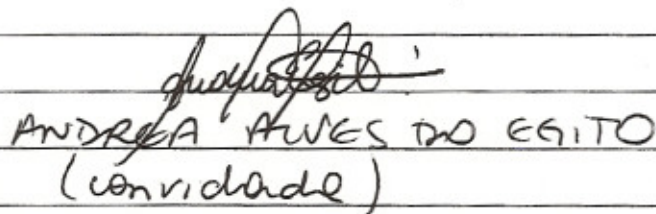 ANDREA ALVES DO EGITO
(convidada)